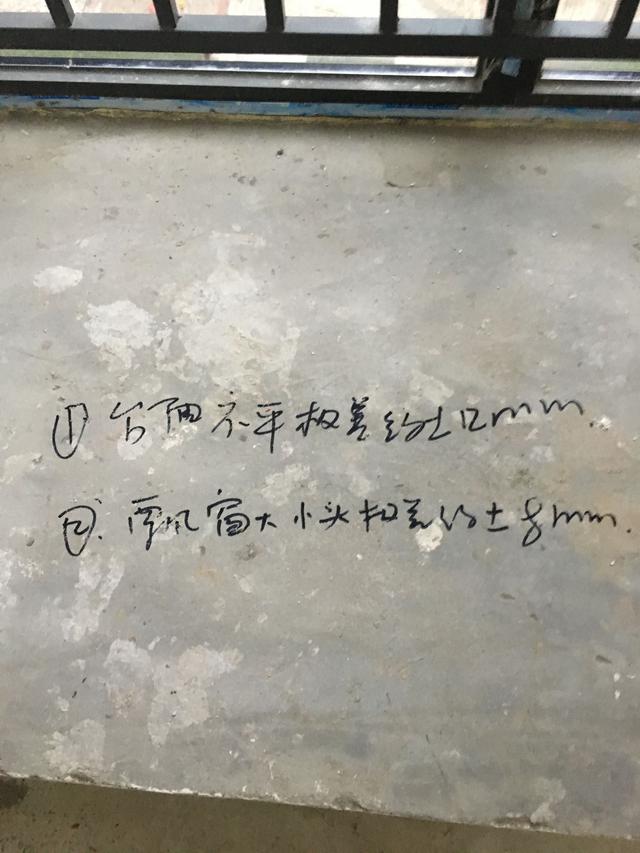 ① 台面不平极差约±12mm.
②. 飘窗大小头极差约±8mm.